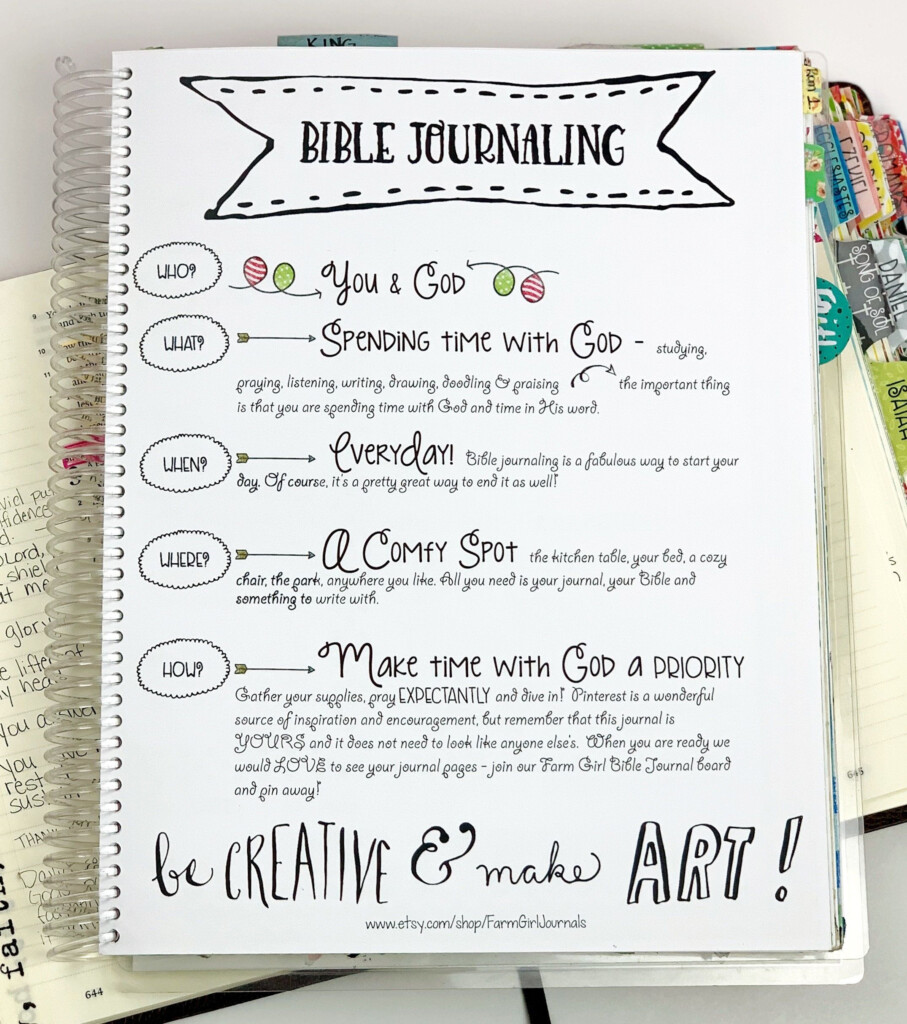 KING
BIBLE JOURNALING
WHO?
You & God
WHAT?
Spending time with God - studying,
praying, listening, writing, drawing, doodling & praising the important thing
is that you are spending time with God and time in His word.
WHEN?
Everyday! Bible journaling is a fabulous way to start your
day. Of course, it's a pretty great way to end it as well!
WHERE?
A Comfy Spot the kitchen table, your bed, a cozy
chair, the park, anywhere you like. All you need is your journal, your Bible and
something to write with.
HOW?
Make time with God a PRIORITY
Gather your supplies, pray EXPECTANTLY and dive in! Pinterest is a wonderful
source of inspiration and encouragement, but remember that this journal is
YOURS and it does not need to look like anyone else's. When you are ready we
would LOVE to see your journal pages - join our Farm Girl Bible Journal board
and pin away!
be CREATIVE & make ART!
www.etsy.com/shop/FarmGirlJournals
ECCLESIASTES
EZEKIEL
SONG OF SOL
DANIEL
ISAIAH
Lord,
glory
You
rest
644
645